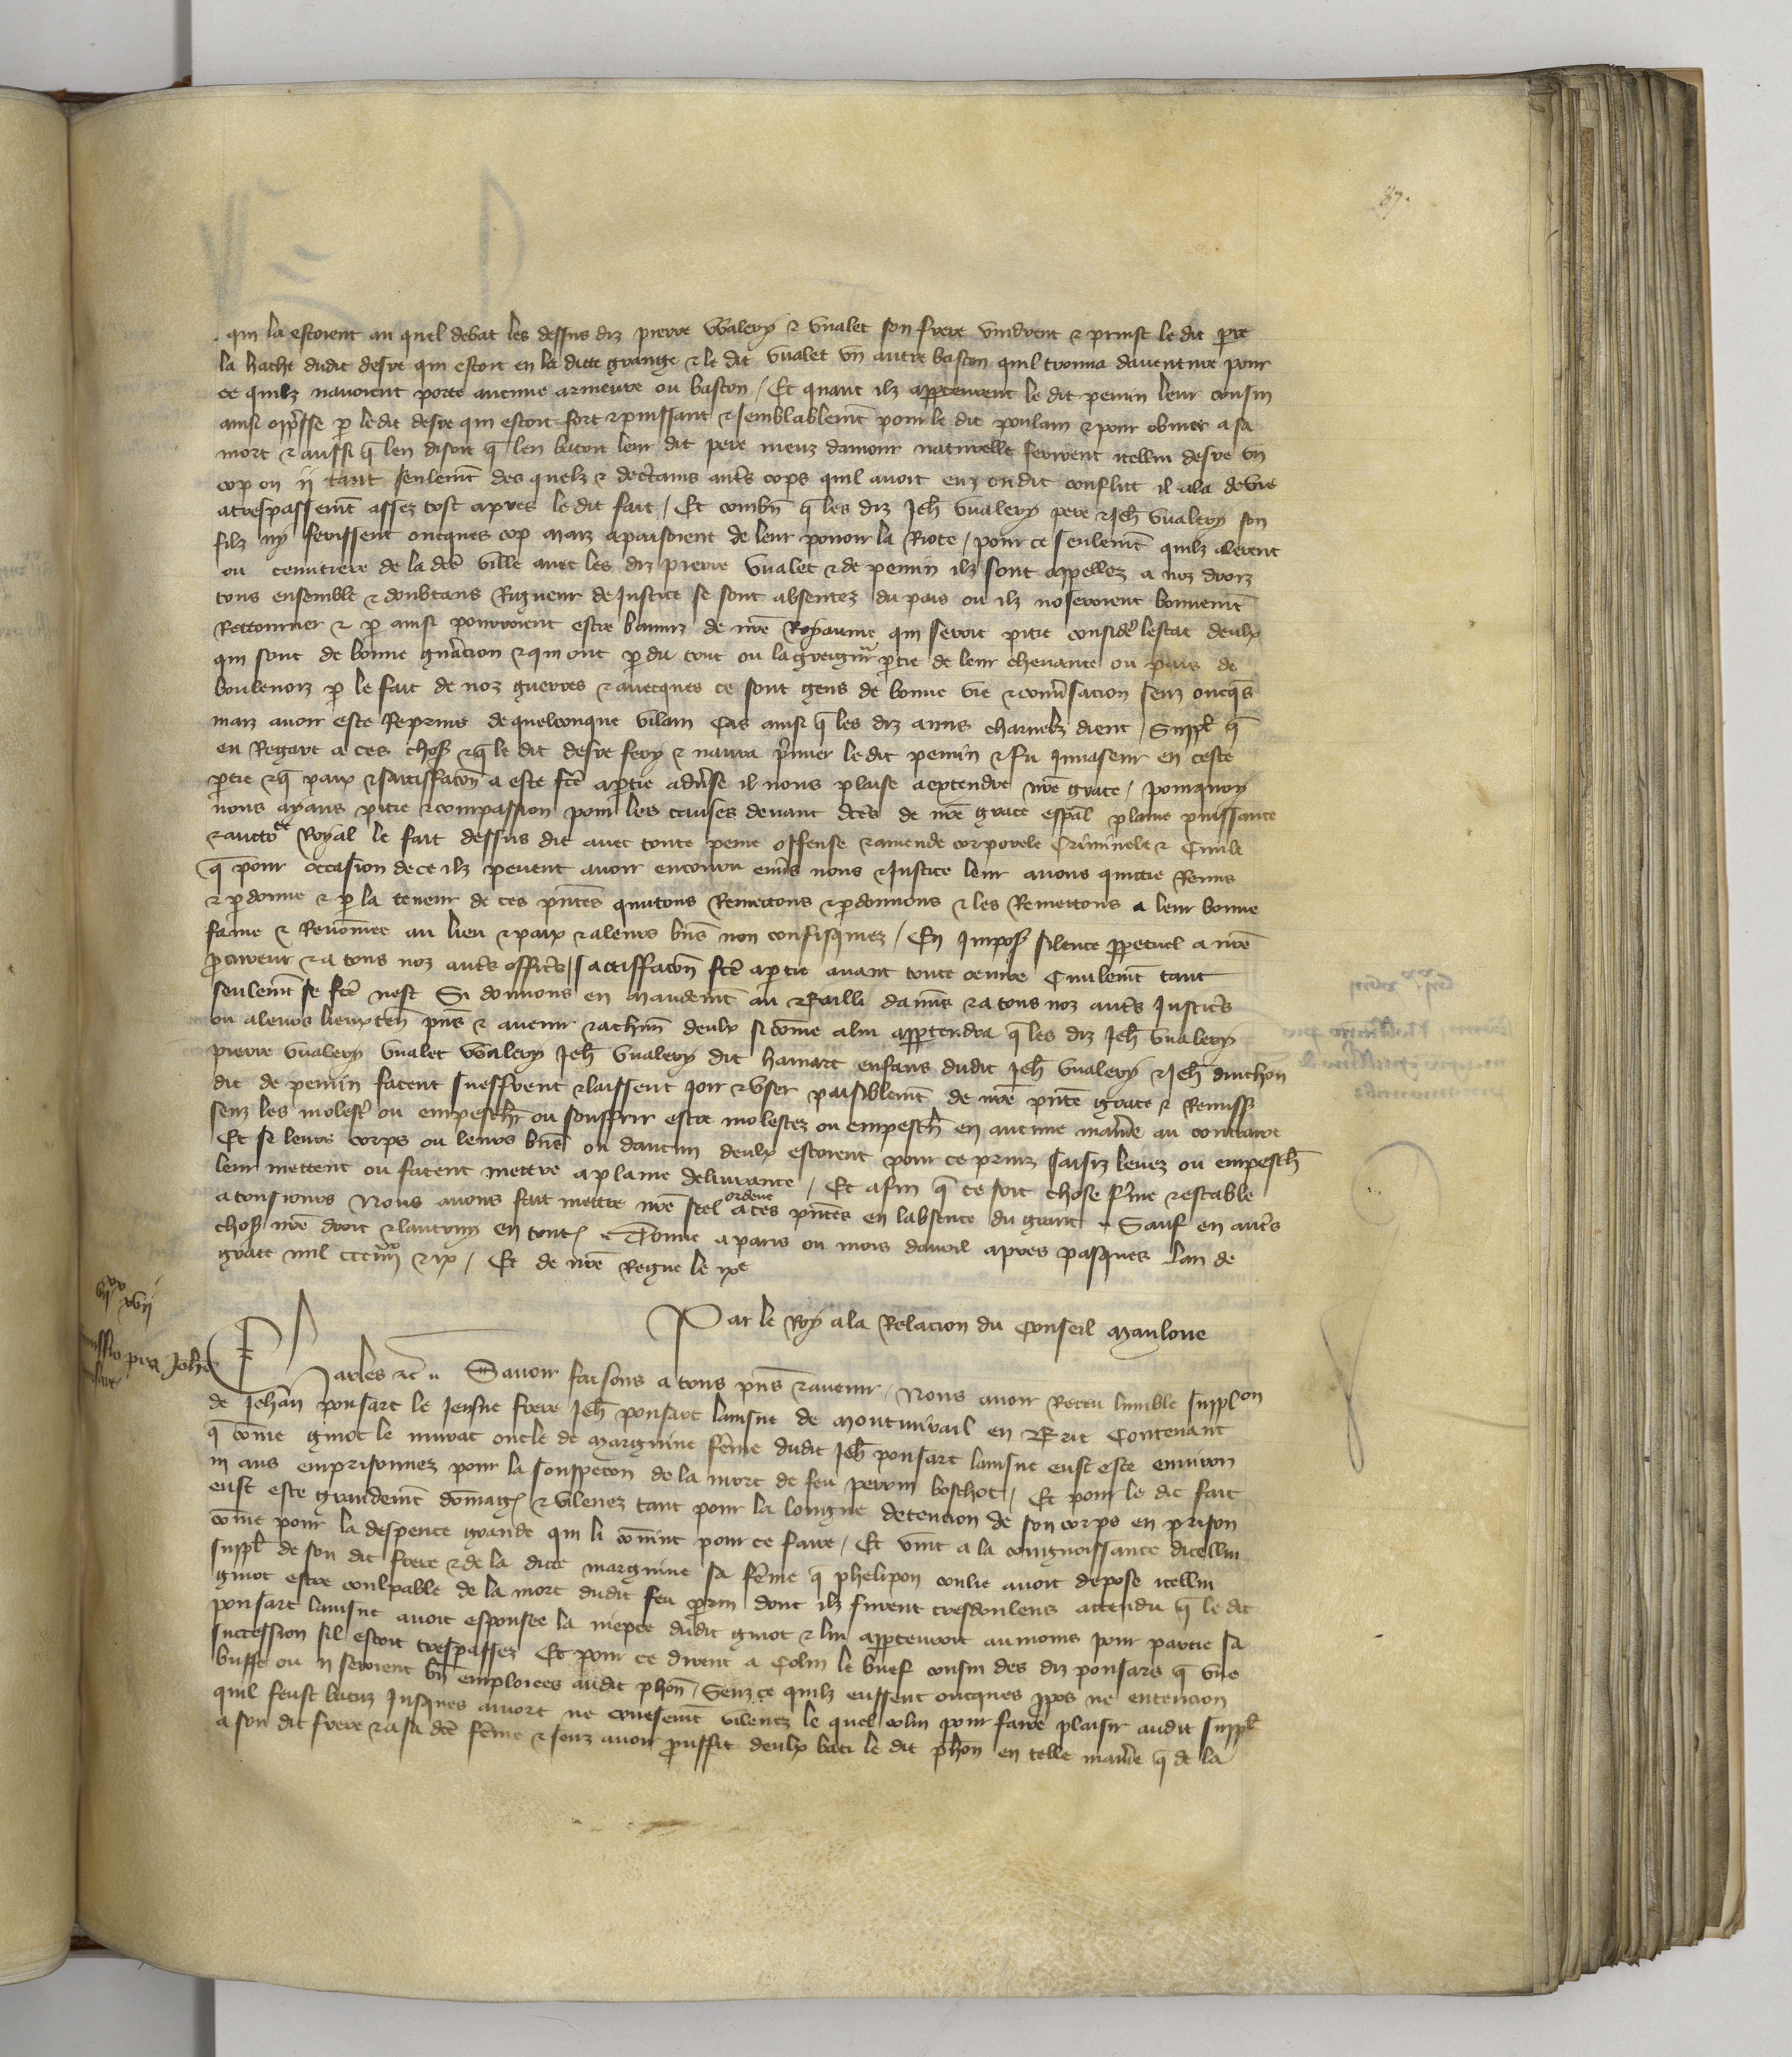 87.
qui la estoient au quel debat les dessus diz pierre Vvalery & vualet son frere vindrent & prinst le dit pre
la hache dudit desre qui estoit en la dicte grange & le dit vualet vn autre baston quil trouua dauenture pour
ce quilz nauoient porte aucune armeure ou baston / Et quant ilz apperceurent le dit pemin leur cousin
ainsi opresse p le dit desre qui estoit fort & puissant & semblablemt pour le dit poulain & pour obuier a sa
mort & aussi q len disoit q len batoit leur dit pere meuz damour naturelle ferirent icellui desre vn
cop ou ij tant seulemt des quelz & dectains auts cops quil auoit euz ondit conflict il ala de vie
a trespassemt assez tost apres le dit fait / Et combn q les diz Jeh vualery pere & Jeh vualery son
filz ny ferissent oncques cop maiz apaisoient de leur pouoir la Riote / pour ce seulemt quilz alerent
ou cimitiere de la dce ville auec les diz pierre vualet & de pemin ilz sont appellez a noz droiz
tous ensemble & doubtans Rigueur de Justice se sont absentez du pais ou ilz noseroient bonnemt
Retourner & p ainsi pourroient estre banniz de nre Royaume qui seroit pitie consider lestat deulx
qui sont de bonne gnracion & qui ont pdu tout ou la greigneur ptie de leur cheuance ou pais de
boulenoiz p le fait de noz guerres & auecques ce sont gens de bonne vie & conusacion senz oncqs
maiz auoir este Reprins de quelconque vilain cas ainsi q les diz amis charnelz dient / Suppl q
en Regart a ces choses & q le dit desre fery & naura pmier le dit pemin & fu Inuaseur en ceste
ptie & q paix & satisfacon a este fce a ptie aduse il nous plaise a extendre nre grace / pourquoy
nous ayans pitie & compassion pour les causes deuant dces de nre grace espal plaine puissance
& auctote Royal le fait dessus dit auec toute peine offense & amende corporele Criminele & Ciuile
q pour occasion de ce ilz peuent auoir encouru enus nous & Justice leur auons quictie Remis
& pdonne & p la teneur de ces pntes quictons Remettons & pdonnons & les Remettons a leur bonne
fame & Renomee au lieu & paix & a leurs bns non confisquiez / En Impos silence ppetuel a nre
pcureur & a tous noz auts officrs / satisffacon fce a ptie auant toute oeuure Ciuilemt tant
seulemt se fce nest Si donnons en mandemt au bailli damis & a tous noz auts Justicrs
ou a leurs lieuxten pns & auenir & a chun deulx si come a lui apptendra q les diz Jeh vualery
pierre vualery vualet vvalery Jeh vualery dit hanart enfans dudit Jeh vualery & Jeh duichon
dit de pemin facent sueffrent & laissent Joir & vser paisiblemt de nre pnte grace & Remiss
senz les molestr ou empeschr ou souffrir estre molestez ou empesch en aucune manre au contraire
Et se leurs corps ou leurs bns ou daucun deulx estoient pour ce prinz saisiz leuez ou empesch
leur mettent ou facent mettre a plaine deliurance / Et afin q ce soit chose fme & estable
a tousiours Nous auons fait mettre nre seel ordene a ces pntes en labsence du grant . Sauf en auts
choses nre droit & lautruy en toutes . Donne a paris ou mois dauril apres pasques Lan de
grace mil ccc iiiixx & ix / Et de nre Regne le ixe
Par le Roy a la Relacion du Conseil Mauloue
vijxx xvij
Remissio pro Johe
ponsart
Charles &c Sauoir faisons a tous pns & auenir / Nous auoir Receu lumble supplon
de Jehan ponsart le Jeusne frere Jeh ponsart lainsne de montmirail en Brie Contenant
q come guiot le murat oncle de marguine feme dudit Jeh ponsart lainsne eust este enuiron
iii ans emprisonnez pour la souspecon de la mort de feu perrin boschot / Et pour le dit fait
eust este grandemt domages & vilenez tant pour la longue detencion de son corps en prison
come pour la despence grande qui li couint pour ce faire / Et vint a la congnoissance dicellui
suppl de son dit frere & de la dicte marguine sa feme q phelipon coulie auoit depose icellui
guiot estre coulpable de la mort dudit feu prin dont ilz furent tresdoulens attendu q le dit
ponsart lainsne auoit espousee la niepce dudit guiot & lui appteuroit au moins pour partie sa
succession sil estoit trespassez Et pour ce dirent a Colin le buef cousin des diz ponsars q vne
buffe ou ij seroient bn emploiees audit phon / Senz ce quilz eussent oncques ppos ne entencion
quil feust batuz Jusques a mort ne enusemt vilenez le quel colin pour faire plaisir audit suppl
a son dit frere & a sa dce feme & senz auoir prouffit deulx bati le dit phon en telle manre q de la